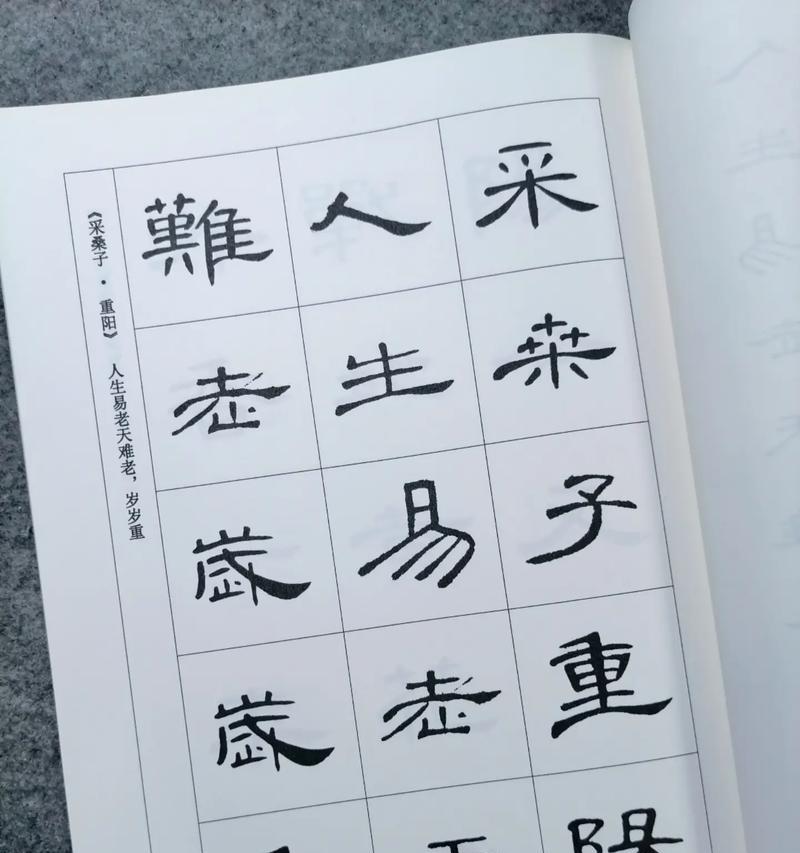 采桒子重陽
人生易老
難老歲歲
《采桑子·重阳》 人生易老天难老，岁岁重